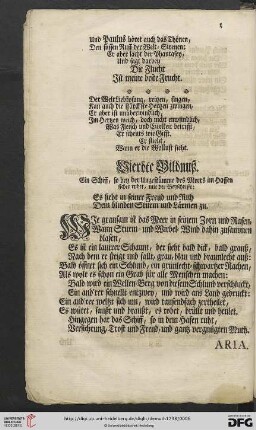 und Paulus höret auch das Thönen,
Den süssen Ruff der Welt-Sirenen:
Er aber lacht der Phantasey,
Und sagt darbey:
Die Flucht
Ist meine beste Frucht.
Der Welt Liebkosung, reitzen, singen,
Kan auch die
Er aber ist unüberwindlich,
Im Hertzen weich, doch nicht empfindlich,
Was Fleisch und
Er scheuts wie Gifft.
Er fliehet,
Wann er die Wollust sieht.
Vierdte Bildnuß.
Ein Schiff, so bey der Ungestümme des Meers im Haffen
sicher ruhet, mit der Beyschrifft:
Es siehet in seiner Freud und Ruh
Dem blinden Sturm und Lärmen zu.
Wie grausam ist das Meer in seinem Zorn und Rasen,
Wann Sturm- und Würbel-Wind dahin zusammen
blasen,
Es ist ein lautrer Schaum, der sieht bald dick, bald grauß,
Nach dem er steigt und fällt, grau, blau und braunlecht auß:
Bald öffnet sich ein Schlund, ein grünlecht-schwartzer Rachen,
Als wolt es schon ein Grab für alle Menschen machen:
Bald wird ein Wellen-Berg von diesem Schlund verschluckt,
Ein andrer schnellt entzwey, und wird ans Land gedruckt:
Ein andrer weltzt sich um, wird tausendfach zertheilet,
Es wütet, saust und braust, es tobet, brüllt und heulet.
Hingegen hat das Schiff, so in dem Hafen ruht,
Versicherung, Trost und Freud, und gantz vergnügten Muth.
ARIA.